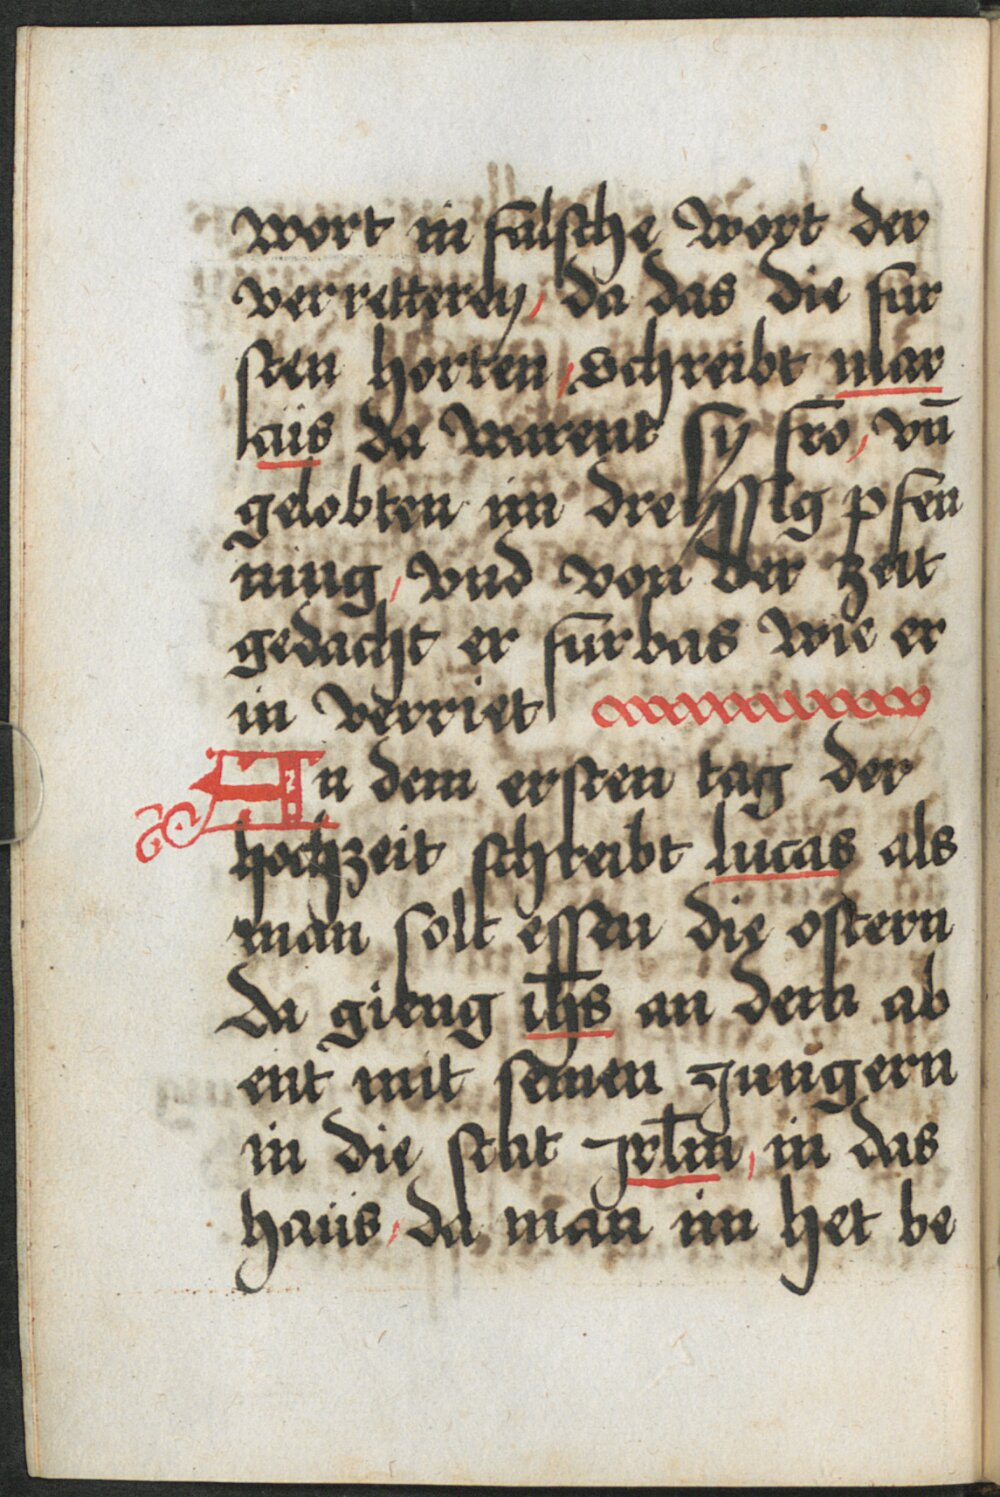 wort in falsche wort der
verretterey, da das die fur
sten horten, schreibt mar
cus da warent sy fro, vn̄
gelobten im dreyssig pfen
ning, vnd von der zeit
gedacht er furbas wie er
in verriet
An dem ersten tag der
hochzeit schreibt lucas als
man solt essen die ostern
da gieng ih̄s an dem ab
ent mit seinen jungern
in die stat jrl̄m, in das
haüs, da man im het be